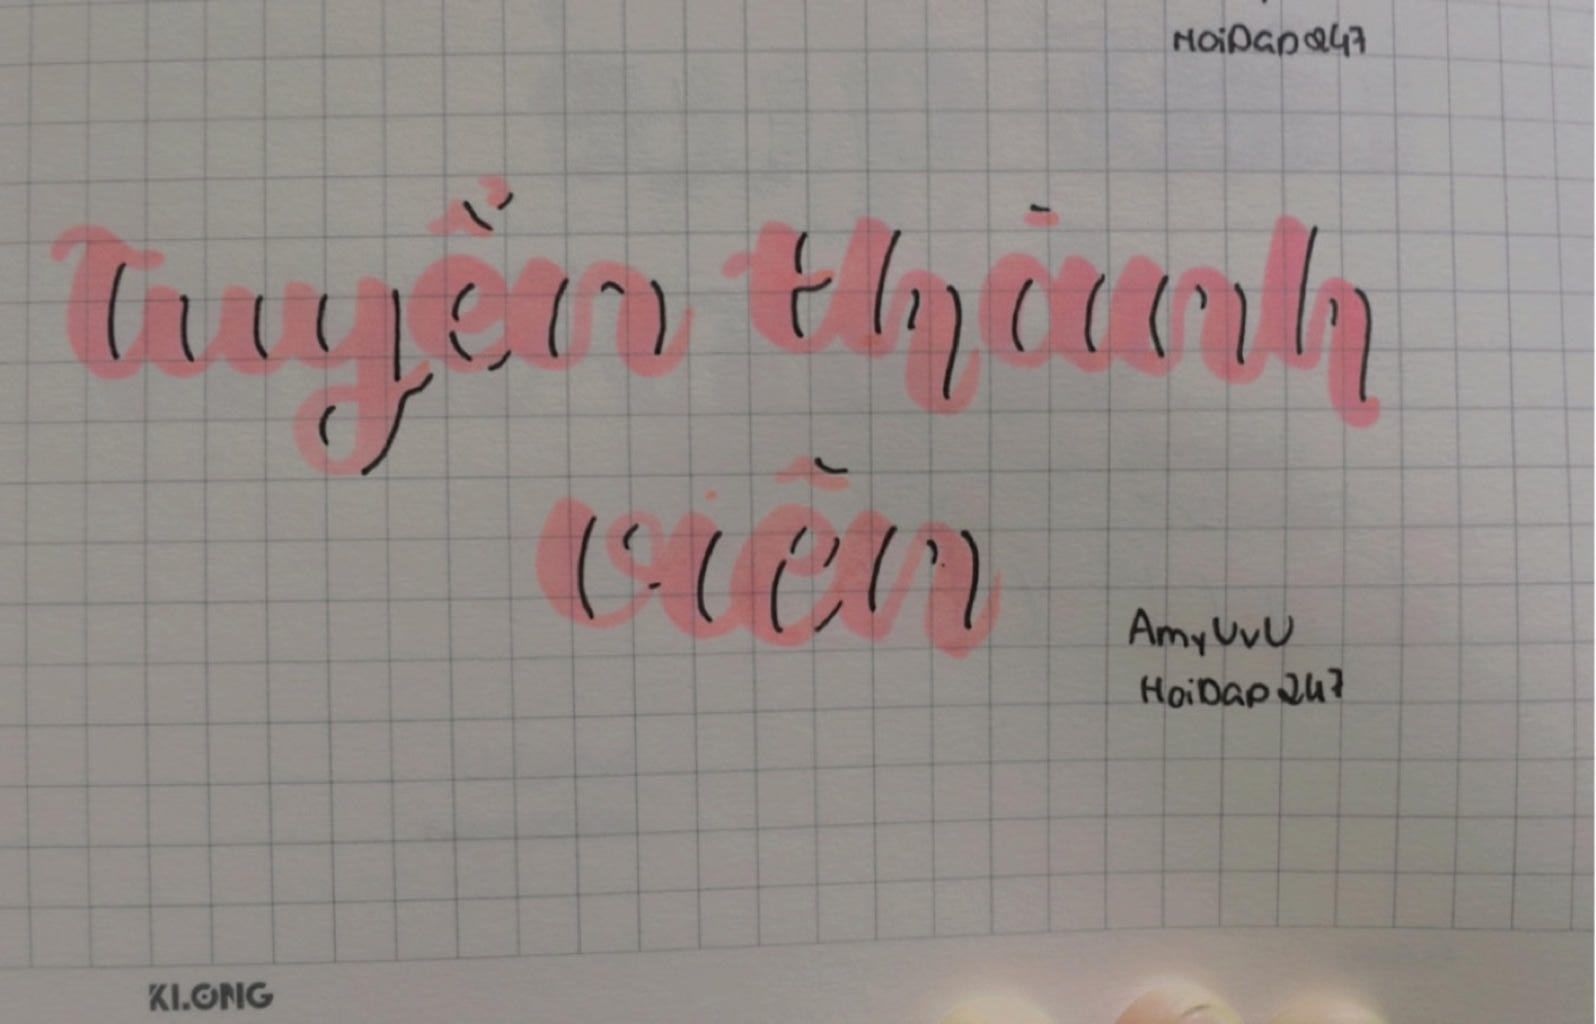 HoiDap247
Tuyển thành
viên
AmyUvU
HoiDap247
KLONG